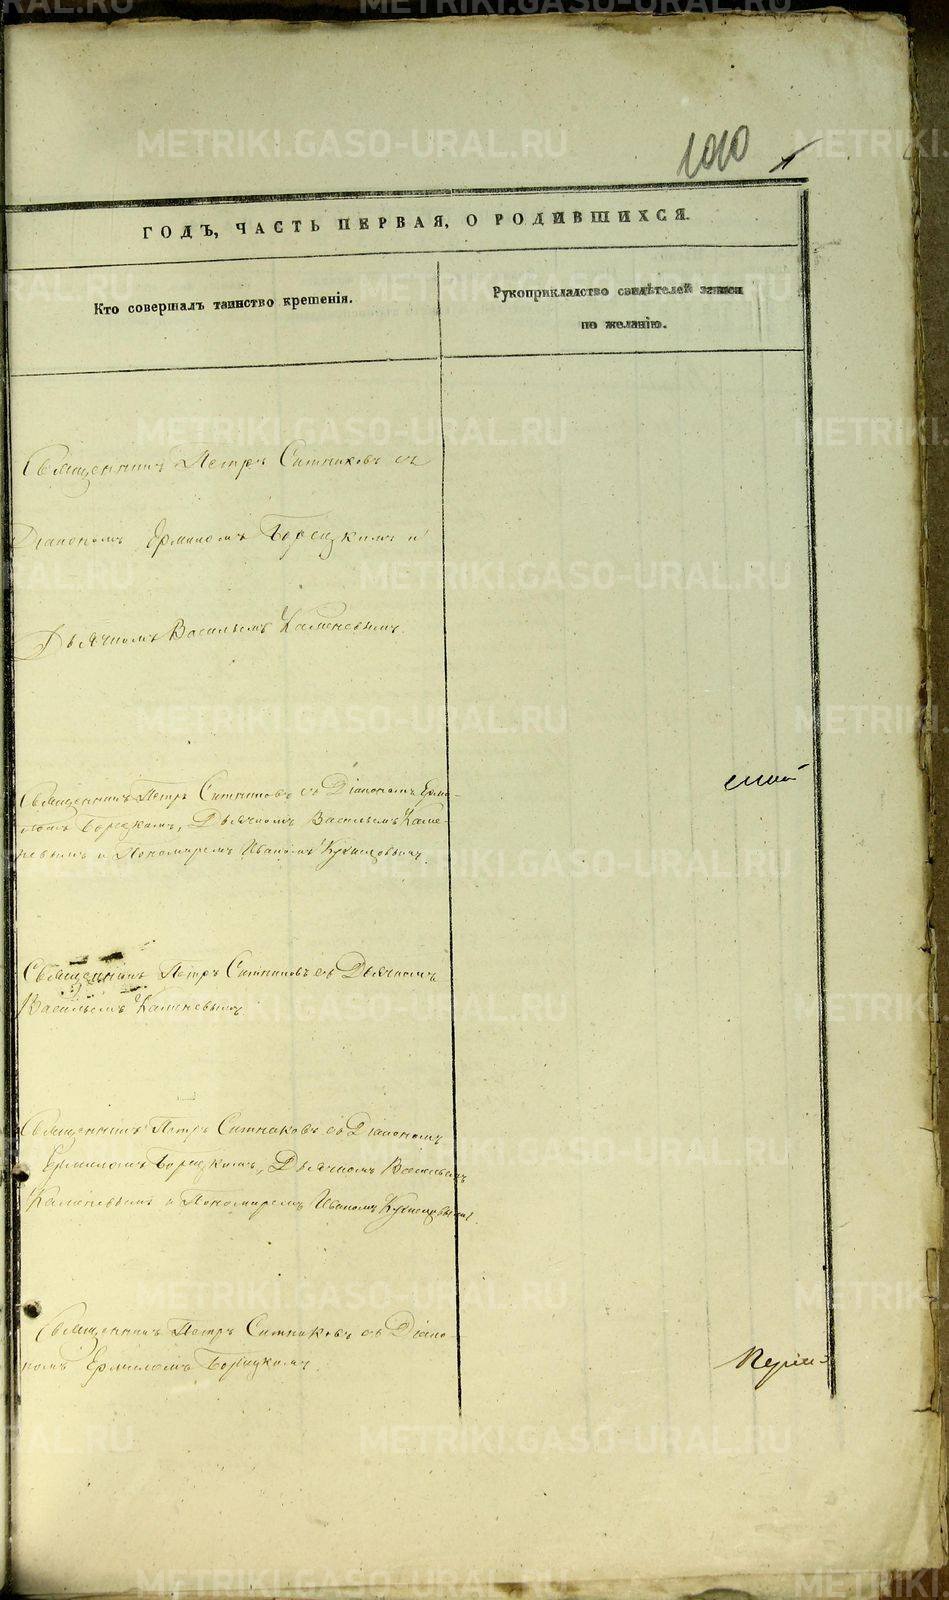 1010
1
ГОДЪ, ЧАСТЬ ПЕРВАЯ, О РОДИВШИХСЯ.
Кто совершалъ таинство крещенія.
Рукоприкладство свидѣтелей записи
по желанію.
Священникъ Петръ Ситниковъ съ
Діакономъ Ермиломъ Борецкимъ и
Дьячкомъ Васильемъ Каменевымъ.
Священникъ Петръ Ситниковъ съ Діакономъ Ерми-
ломъ Борецкимъ, Дьячкомъ Васильемъ Каме-
невымъ и Пономаремъ Иваномъ
Священникъ Петръ Ситниковъ съ Дьячкомъ
Васильемъ Каменевымъ
Священникъ Петръ Ситниковъ съ Діакономъ
Ермиломъ Борецкимъ, Дьячкомъ Васильемъ
Каменевымъ и Пономаремъ Иваномъ
Священникъ Петръ Ситниковъ съ Діако-
номъ Ермиломъ Борецкимъ.
METRIKI.GASO-URAL.RU